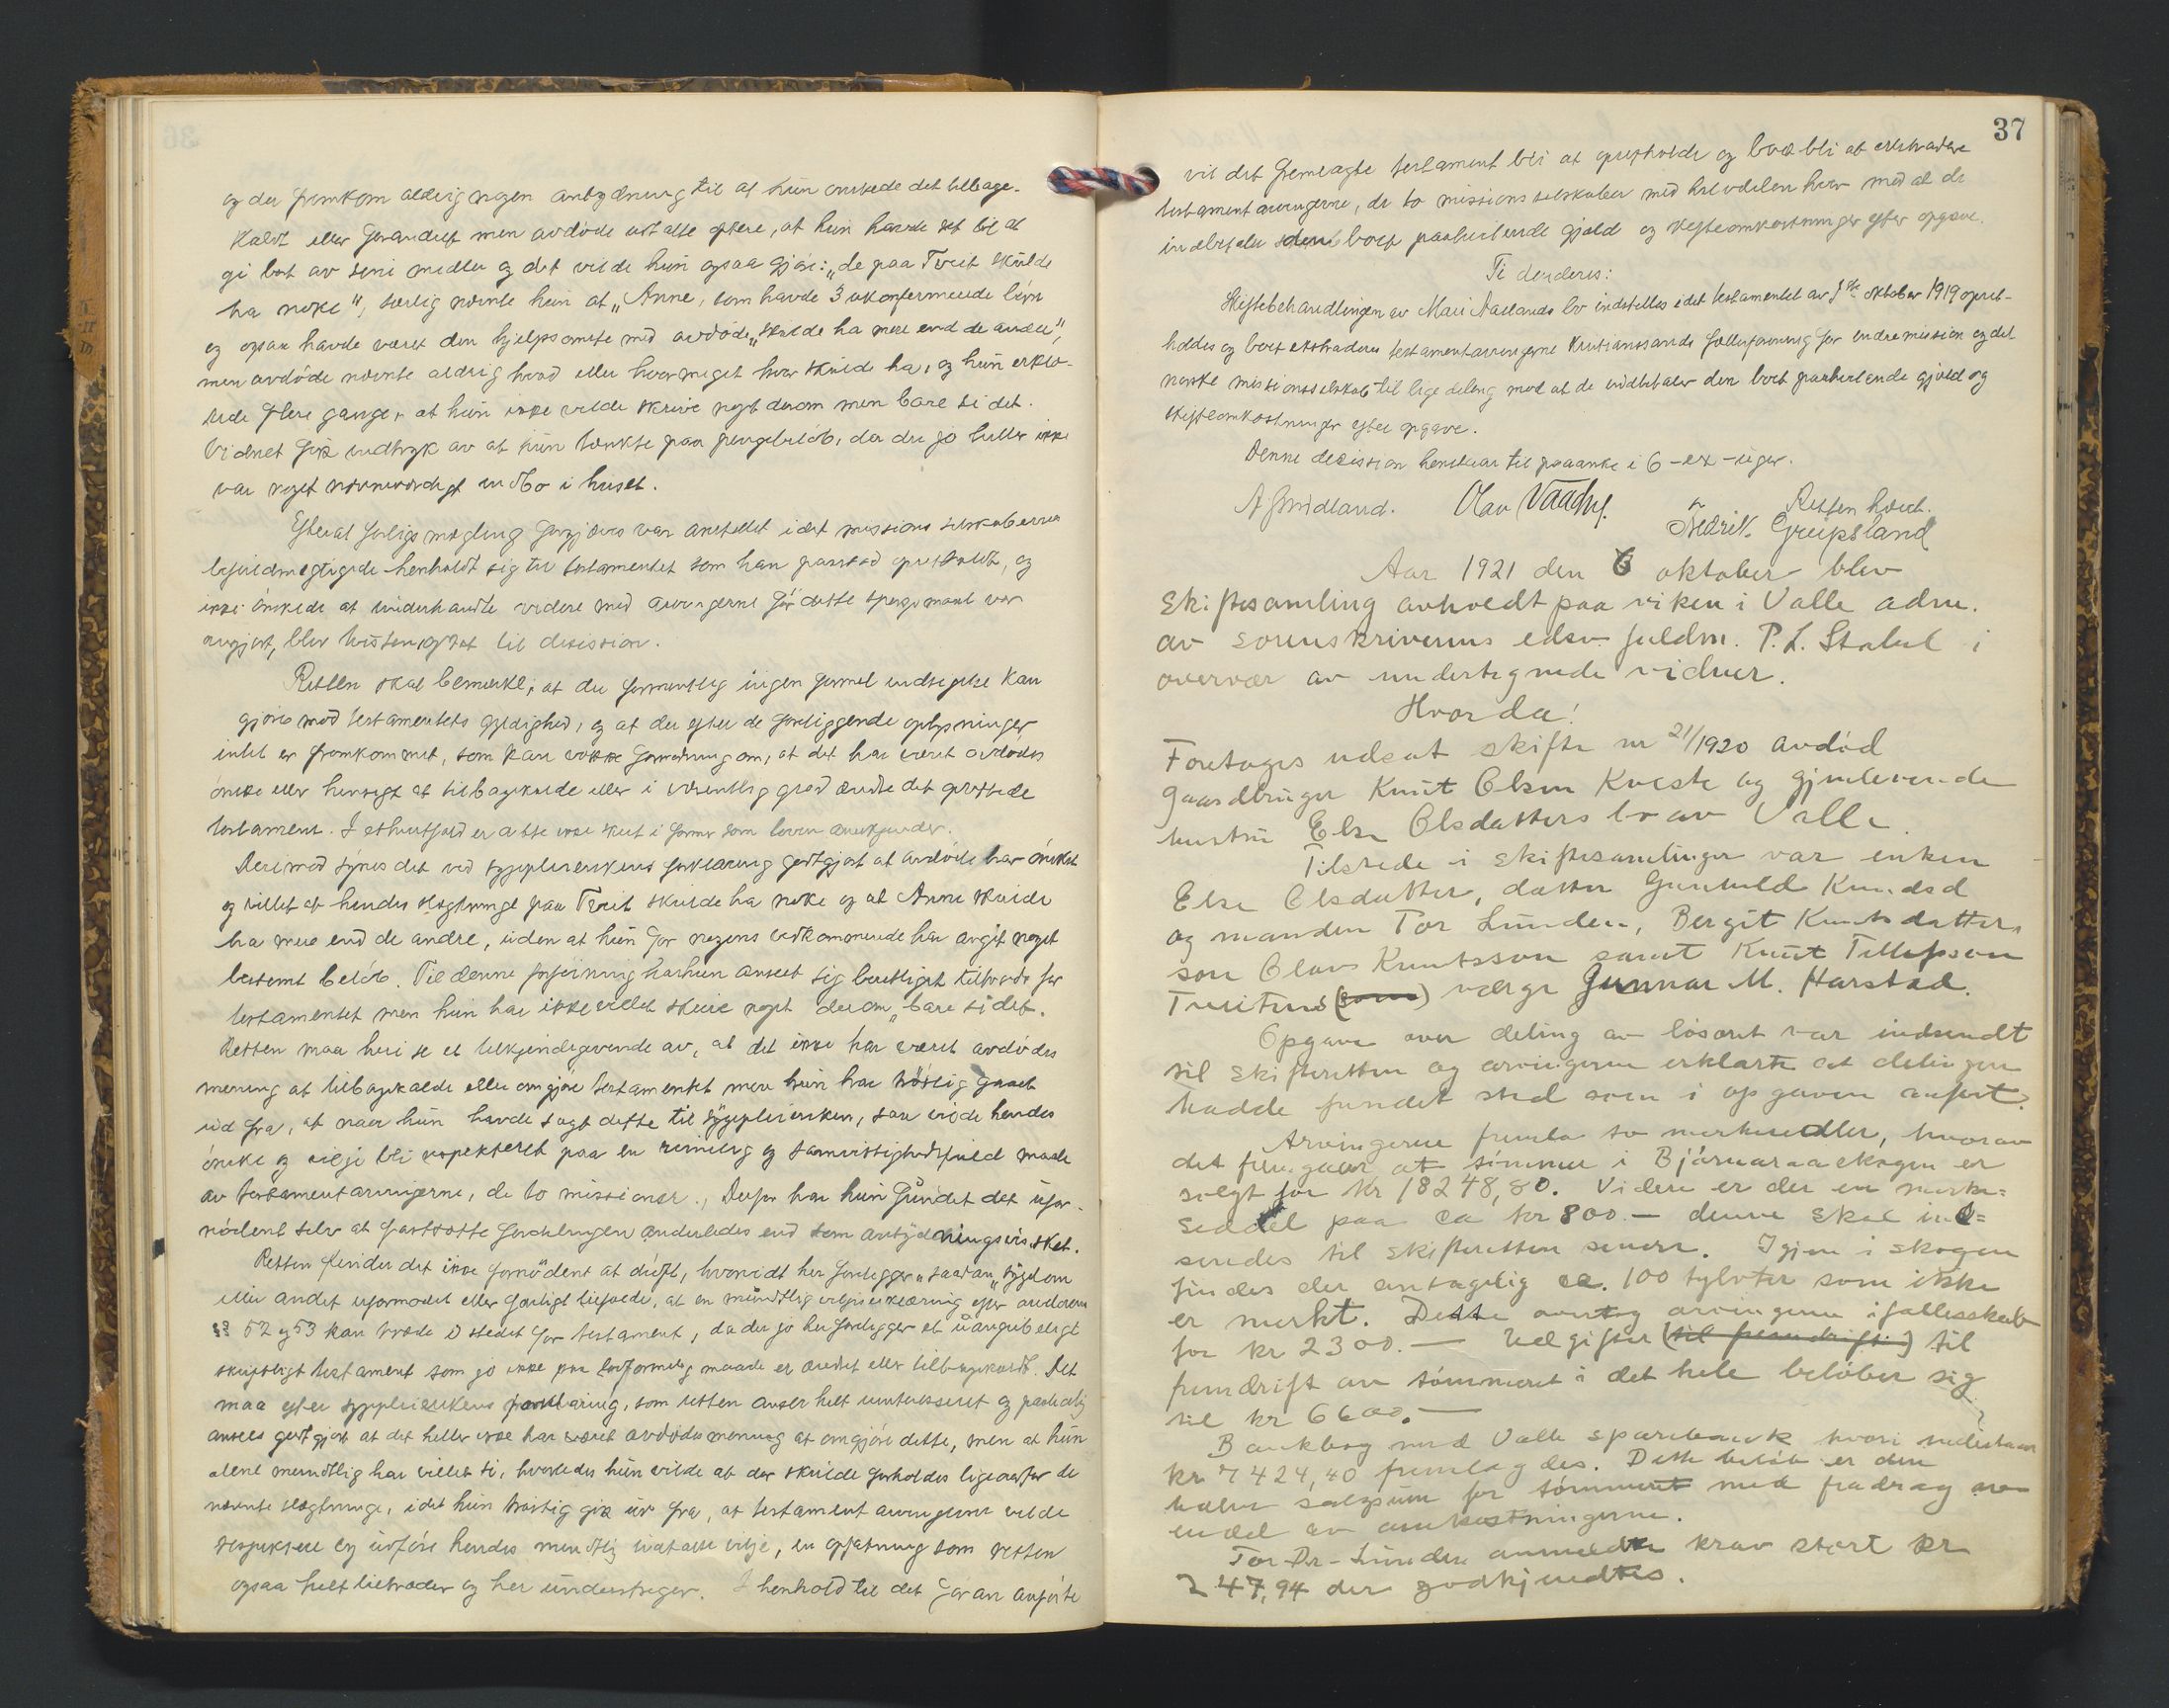 og der fremkom aldrig nogen antydning til at hun ønskede det tilbage-
kaldt eller forandret men avdøde uttalte oftere, at hun havde ret til at
gi bort av sine midler og det vilde hun ogsaa gjøre: „de paa Tveit skulde
ha noke“, særlig nævnte hun at „Anne, som havde 3 ukonfermerede børn
og ogsaa havde været den hjelpsomste mod avdøde „skulde ha mere end de andre“,
men avdøde nævnte aldrig hvad eller hvor meget hver skulde ha, og hun erklæ-
rede flere ganger at hun ikke vilde skrive noget derom men bare si det.
Vidnet fik indtryk av at hun tænkte paa pengebeløb, da der jo heller ikke
var noget nævneværdigt indbo i huset.
Efterat forligsmegling forgjæves var anstillet idet missionsselskabernes
befuldmegtigede henholdt sig til testamentet som han paastod opretholdt, og
ikke ønskede at underhandle videre med arvingerne før dette spørgsmaal var
avgjort, blev tvisten optat til decission.
Retten skal bemerke, at der formentlig ingen formel indsigelse kan
gjøres mod testamentets gyldighed, og at der efter de foreliggende oplysninger
intet er fremkommet, som kan vække formodning om, at det har været avdødes
ønske eller hensigt at tilbakekalde eller i væsentlig grad ændre det oprettede
testament. I ethvertfald er dette ikke skeet i former som loven anerkjender.
Derimod synes det ved sygepleierskens forklaring godtgjort at avdøde har ønsket
og villet at hendes slegtninge paa Tveit skulde ha noke og at Anne skulde
ha mere end de andre, uden at hun for nogens vedkommende har angit noget
bestemt beløb. Til denne føining har hun anseet sig berettiget tiltrods for
testamentet men hun har ikke villet skrive noget derom „bare si det“.
Retten maa heri se et tilkjendegivende av, at det ikke har været avdødes
mening at tilbagekalde eller omgjøre testamentet men hun har trøstig gaaet
ud fra, at naar hun havde sagt dette til sygepleiersken, saa vilde hendes
ønske og vilje bli respekteret paa en rimelig og samvittighedsfuld maade
av testamentarvingerne, de to missioner. Derfor har hun fundet det ufor-
nødent selv at fastsætte fordelingen anderledes end som antydningsvis sket.
Retten finder det ikke fornødent at drøfte, hvorvidt her foreligger „saadan“ sygdom
eller andet uformodet eller farligt tilfælde, at en mundtlig viljeserklæring efter arvelovens
§§ 52 og 53 kan træde istedet for testament, da der jo her foreligger et uangribeligt
skriftligt testament som jo ikke paa lovformelig maade er ændret eller tilbagekaldt. Det
maa efter sygepleierskens forklaring, som retten anser helt uinteresseret og paalidelig
ansees godtgjort at det heller ikke har været avdødes mening at omgjøre dette, men at hun
alene mundtlig har villet si, hvorledes hun vilde at der skulde forholdes ligeoverfor de
nævnte slegtninge, idet hun trøstig gik ut fra, at testamentarvingerne vilde
respektere og utføre hendes mundtlig uttalte vilje, en opfatning som retten
ogsaa helt tiltræder og her understreger. I henhold til det foran anførte
37
vil det fremlagte testament bli at opretholde og boet bli at extradere
testamentarvingerne, de to missionsselskaber med halvdelen hver mod at de
indbetaler den boet paahvilende gjæld og skifteomkostninger efter opgave.
Ti decideres:
Skiftebehandlingen av Mari Aaslands bo indstilles idet testamentet av 9de oktober 1919 opret-
holdes og boet extraderes testamentarvingerne Kristianssands fællesforening for indremission og det
norske missionsselskab til lige deling mod at de indbetaler den boet paahvilende gjæld og
skifteomkostninger efter opgave.
Denne decission henstaar til paaanke i 6 – sex – uger.
Retten hævet.
A Smidland. Olav Fredrik Greipsland
Aar 1921 den 6 oktober blev
skiftesamling avholdt paa viken i Valle adm.
av sorenskriverens edsv. fuldm. P. L. Stabel i
overvær av undertegnede vidner.
Hvorda!
Foretages utsat skifte nr 21/1920 avdød
gaardbruger Knut Olsen Kveste og gjenlevende
hustru Else Olsdatters bo av Valle.
Tilstede i skiftesamlingen var enken
Else Olsdatter, datter Gunhild Knudsd
og manden Tor Lunden, Bergit Knutsdatters
søn Olav Knutsson samt Knut Tellefsson
(som) værge Gunnar M. Harstad.
Opgave over deling av løsøret var indsendt
til skifteretten og arvingerne erklærte at delingen
hadde fundet sted som i opgaven anført.
Arvingerne fremla to merkesedler, hvorav
det fremgaar at tømmer i Bjørnaraaskogen er
solgt for kr 18248,80. Videre er der en merke=
seddel paa ca kr 800.— denne skal ind=
sendes til skifteretten senere. Igjen i skogen
findes der antagelig ca. 100 tylvter som ikke
er merkt. Dette overtog arvingerne i fællesskab
for kr 2300.— Utgifter (til fremdrift) til
fremdrift av tømmeret i det hele beløber sig
til kr 6600.—
Bankbog med Valle sparebank hvori indestaar
kr 7424,40 fremlagdes. Dette beløb er den
halve salgsum for tømmeret med fradrag av
endel av omkostningerne.
Tor Dr. Lunden anmeldte krav stort kr
247,94 der godkjendtes.